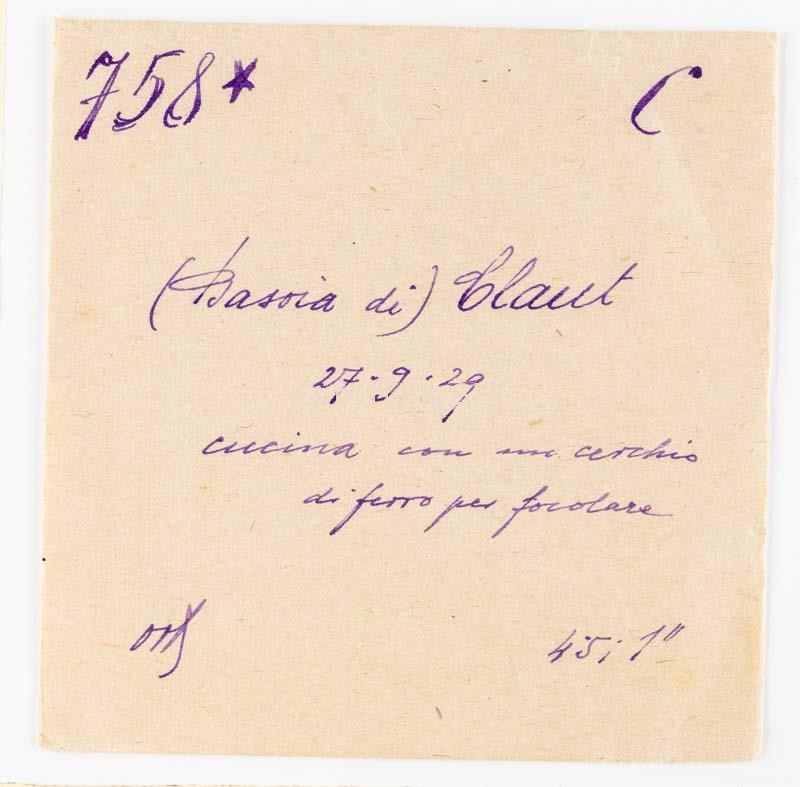 758*
C
(Basoia di) Claut
27-9-29
cucina con un cerchio
di ferro per focolare
45; 1"